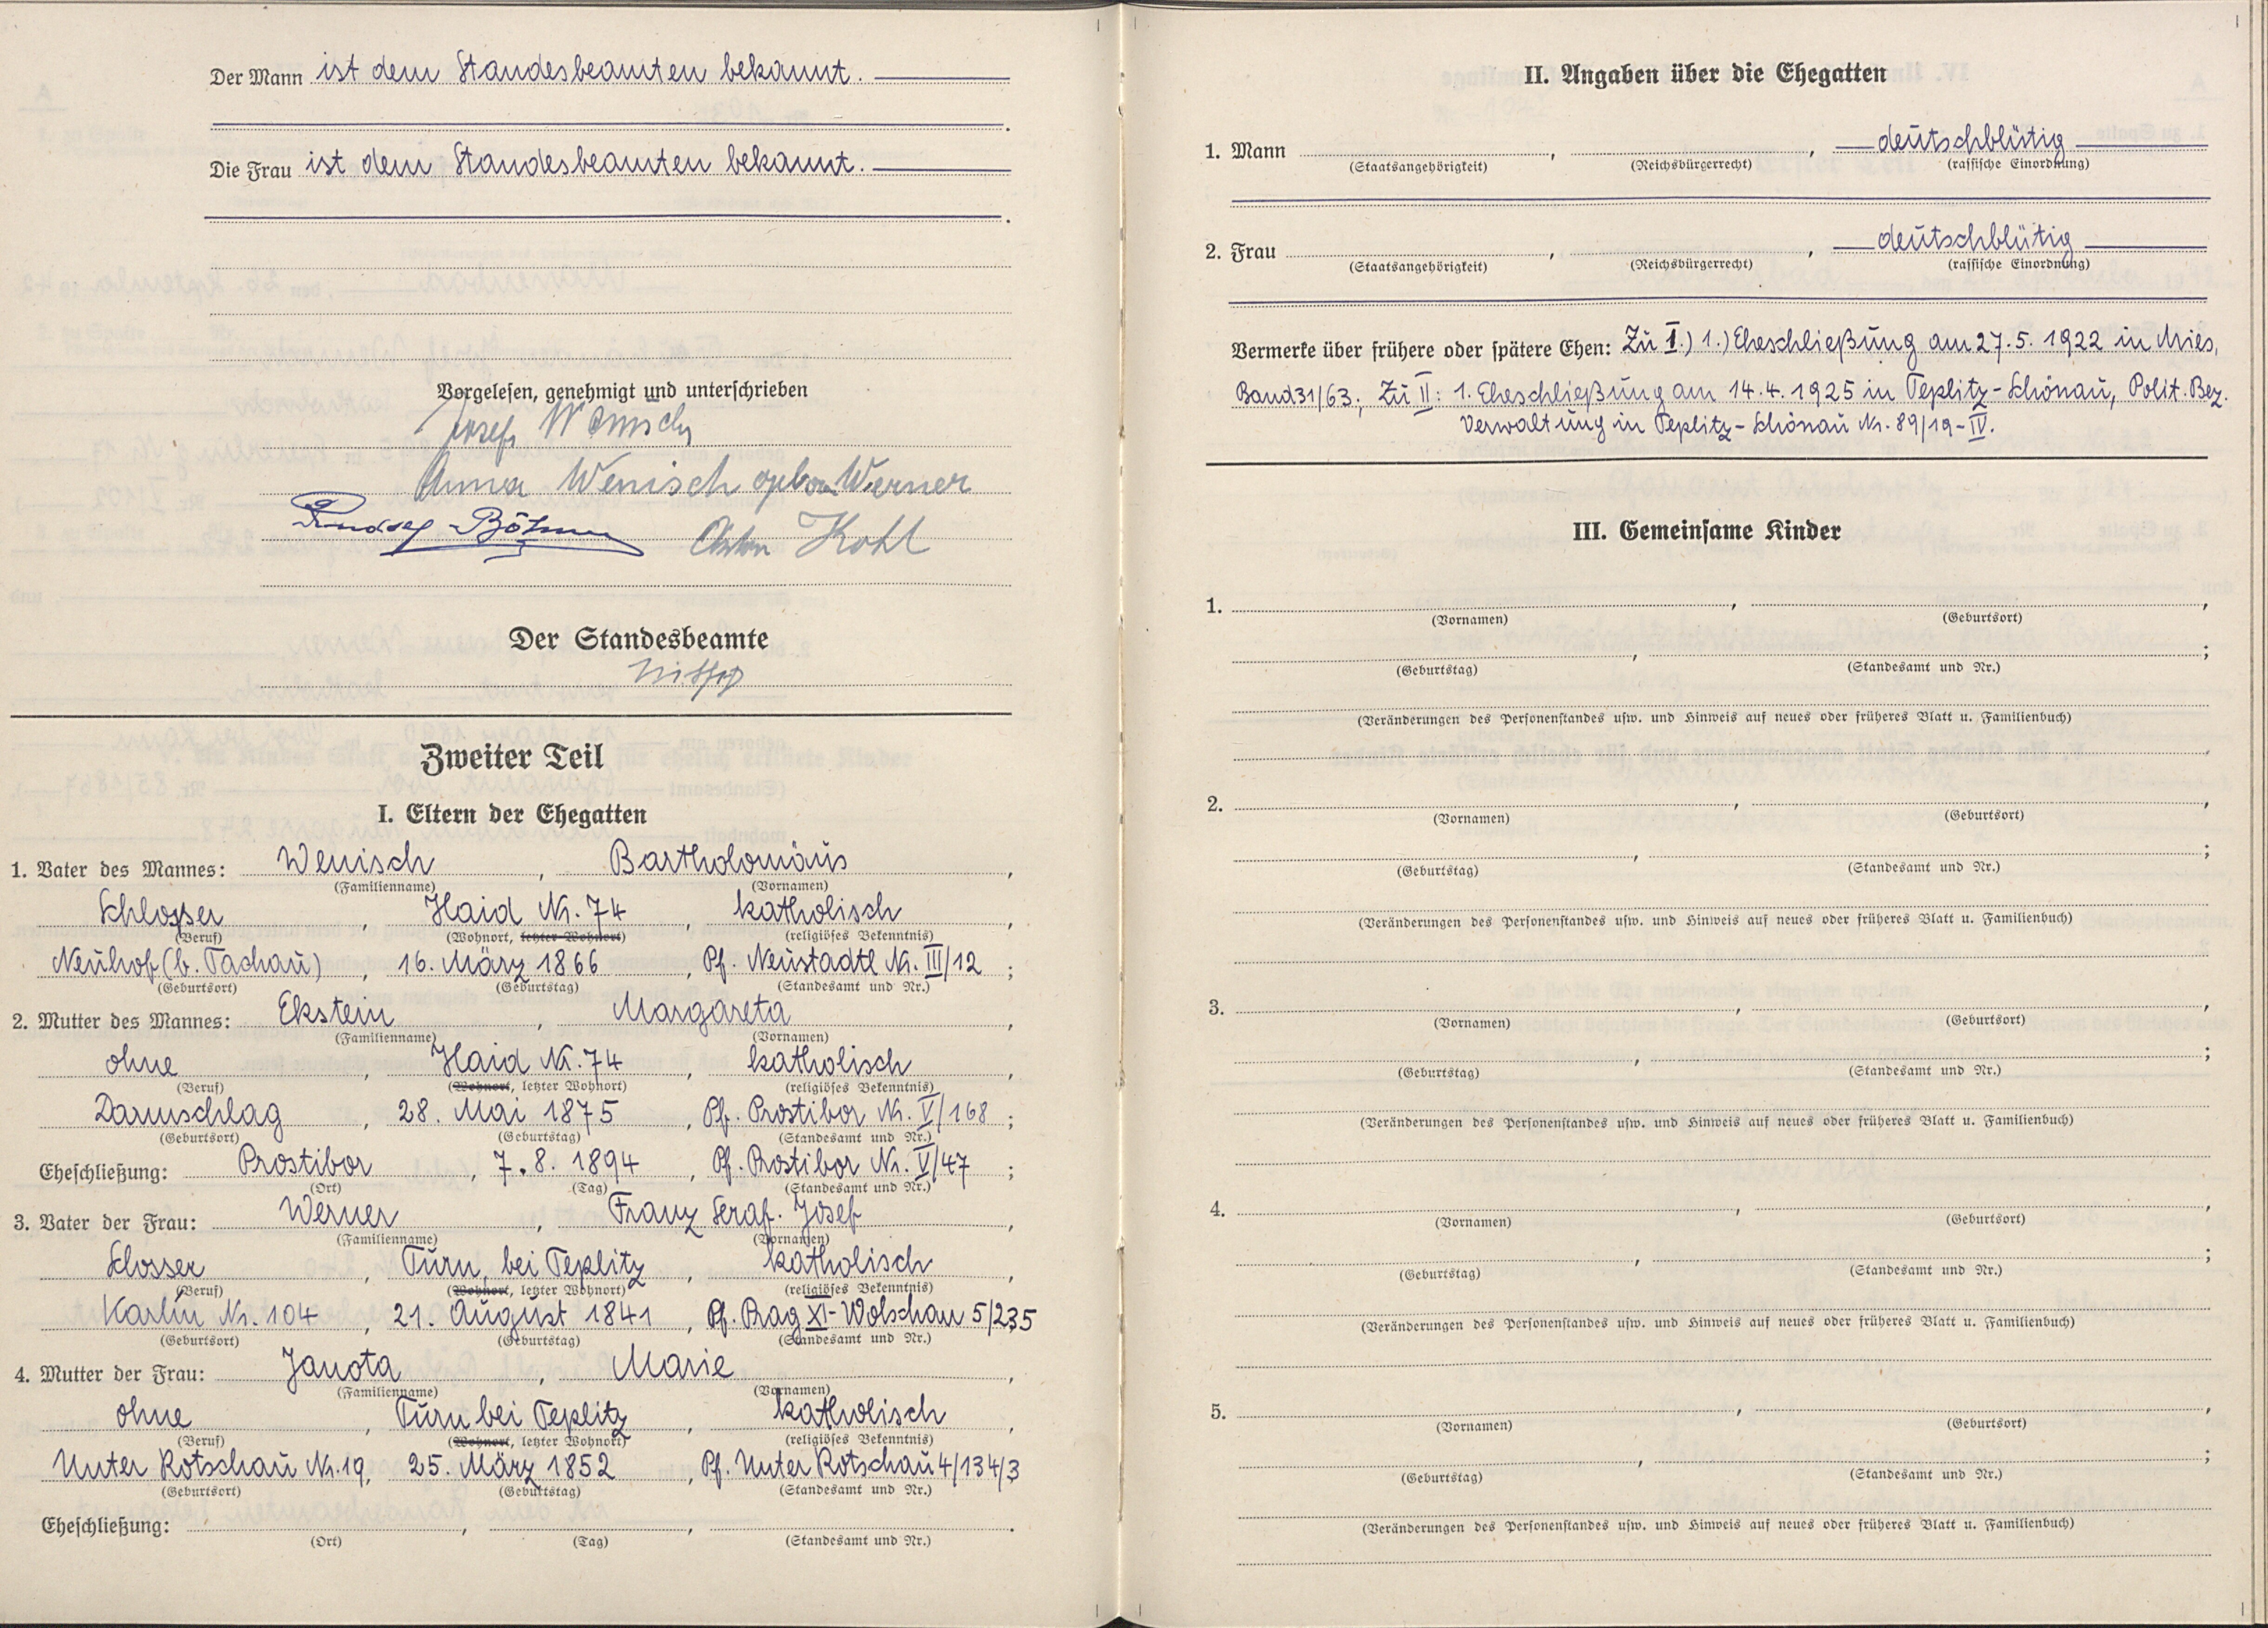 Der Mann ist dem Standesbeamten bekannt.
Die Frau ist dem Standesbeamten bekannt.
Vorgelesen, genehmigt und unterschrieben
Josef Wenisch
Anna Wenisch geboren Werner
Rudolf Böhm Anton Kohl
Der Standesbeamte
Zweiter Teil
I. Eltern der Ehegatten
1. Vater des Mannes: Wenisch, Bartholomäus,
(Familienname) (Vornamen)
Schlosser, Haid Nr. 74, katholisch,
(Beruf) (Wohnort, letzter Wohnort) (religiöses Bekenntnis)
Neuhof (b. Tachau), 16. März 1866, Pf. Neustadtl Nr. III/12;
(Geburtsort) (Geburtstag) (Standesamt und Nr.)
2. Mutter des Mannes: Ekstein, Margareta,
(Familienname) (Vornamen)
ohne, Haid Nr. 74, katholisch,
(Beruf) (Wohnort, letzter Wohnort) (religiöses Bekenntnis)
Darmschlag, 28. Mai 1875, Pf. Prostibor Nr. V/168;
(Geburtsort) (Geburtstag) (Standesamt und Nr.)
Eheschließung: Prostibor, 7. 8. 1894, Pf. Prostibor Nr. V/47;
(Ort) (Tag) (Standesamt und Nr.)
3. Vater der Frau: Werner, Franz Seraf. Josef,
(Familienname) (Vornamen)
Schosser, Turn, bei Teplitz, katholisch,
(Beruf) (Wohnort, letzter Wohnort) (religiöses Bekenntnis)
Karlín Nr. 104, 21. August 1841, Pf. Prag XI-Wolschan 5/235
(Geburtsort) (Geburtstag) (Standesamt und Nr.)
4. Mutter der Frau: Janota, Marie,
(Familienname) (Vornamen)
ohne, Turn bei Teplitz, katholisch,
(Beruf) (Wohnort, letzter Wohnort) (religiöses Bekenntnis)
Unter Rotschau Nr. 19, 25. März 1852, Pf. Unter Rotschau 4/134/3
(Geburtsort) (Geburtstag) (Standesamt und Nr.)
Eheschließung: , , .
(Ort) (Tag) (Standesamt und Nr.)
II. Angaben über die Ehegatten
1. Mann , , deutschblütig
(Staatsangehörigkeit) (Reichsbürgerrecht) (rassische Einordnung)
2. Frau , , deutschblütig
(Staatsangehörigkeit) (Reichsbürgerrecht) (rassische Einordnung)
Vermerke über frühere oder spätere Ehen: Zu I.) 1.) Eheschließung am 27. 5. 1922 in Mies,
Band 31/63; Zu II: 1. Eheschließung am 14. 4. 1925 in Teplitz-Schönau, Polit. Bez.
Verwaltung in Teplitz-Schönau Nr. 89/19-IV.
III. Gemeinsame Kinder
1. , ,
(Vornamen) (Geburtsort)
, ;
(Geburtstag) (Standesamt und Nr.)
(Veränderungen des Personenstandes usw. und Hinweis auf neues oder früheres Blatt u. Familienbuch)
2. , ,
(Vornamen) (Geburtsort)
, ;
(Geburtstag) (Standesamt und Nr.)
(Veränderungen des Personenstandes usw. und Hinweis auf neues oder früheres Blatt u. Familienbuch)
3. , ,
(Vornamen) (Geburtsort)
, ;
(Geburtstag) (Standesamt und Nr.)
(Veränderungen des Personenstandes usw. und Hinweis auf neues oder früheres Blatt u. Familienbuch)
4. , ,
(Vornamen) (Geburtsort)
, ;
(Geburtstag) (Standesamt und Nr.)
(Veränderungen des Personenstandes usw. und Hinweis auf neues oder früheres Blatt u. Familienbuch)
5. , ,
(Vornamen) (Geburtsort)
, ;
(Geburtstag) (Standesamt und Nr.)
(Veränderungen des Personenstandes usw. und Hinweis auf neues oder früheres Blatt u. Familienbuch)